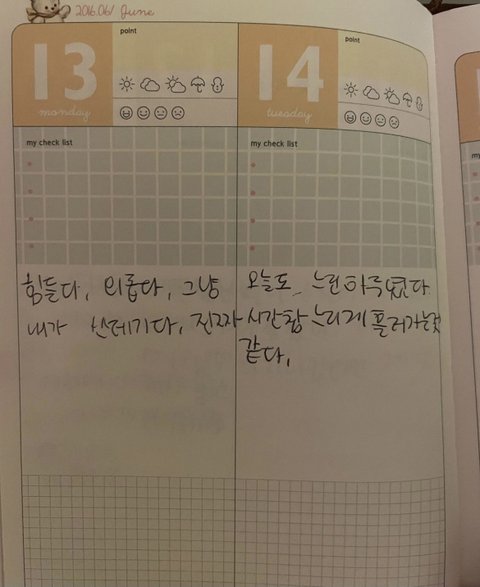 2016.06/ June
13
monday
point
my check list
힘들다, 외롭다, 그냥
내가 쓰레기다, 진짜
14
tuesday
point
my check list
오늘도 느린하루였다
시간참 느리게 흘러가는것
같다,